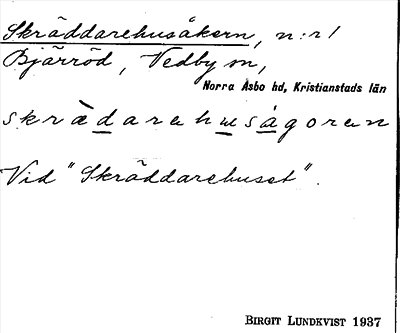 Skräddarehusåkern, n:r 1
Bjärröd, Vedby sn,
Norra Åsbo hd, Kristianstads län
skrädarehusågoren
Vid "Skräddarehuset".
BIRGIT LUNDKVIST 1937